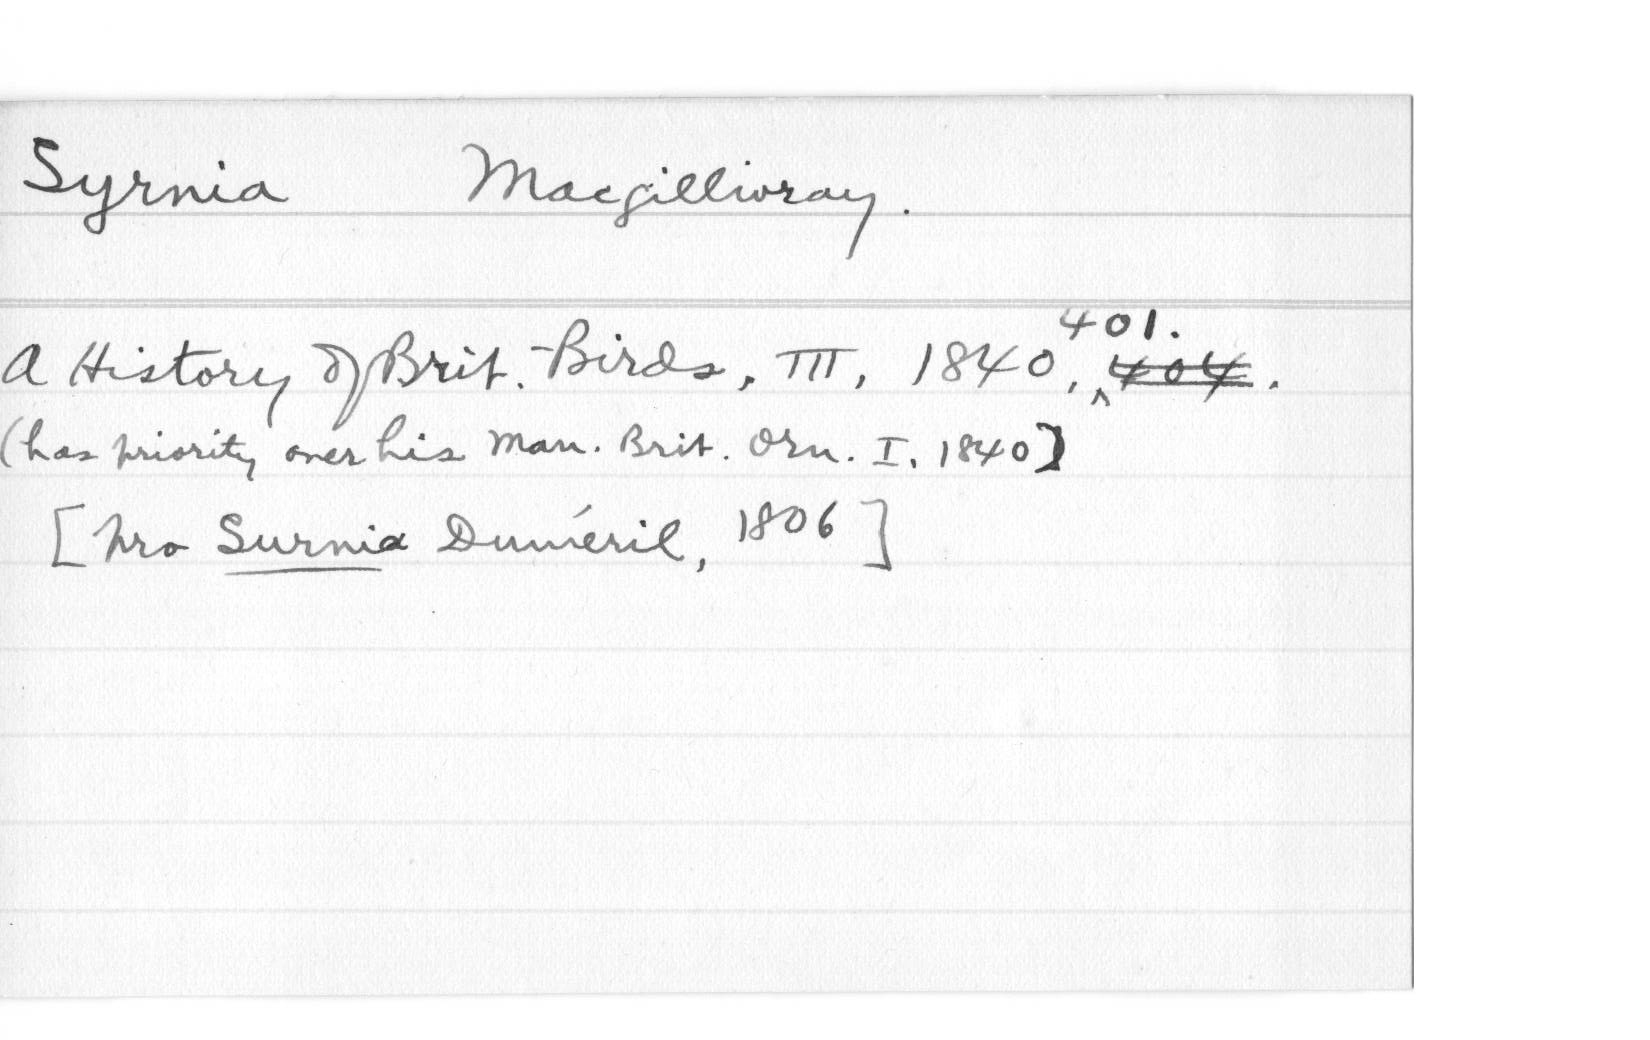 Syrnia Macgillivray.
A History of Brit. Birds, III, 1840, 401. 404.
(has priority over his Man. Brit. Orn. I, 1840)
[pro Surnia Duméril, 1806]